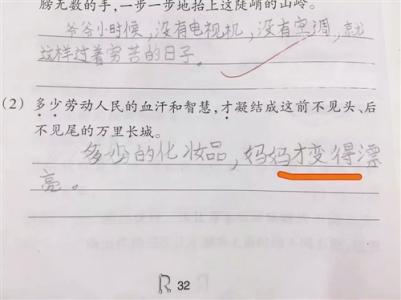 膀无数的手,一步一步地抬上这陡峭的山岭。
爷爷小时候,没有电视机,没有空调,就
这样过着穷苦的日子。
(2) 多少劳动人民的血汗和智慧,才凝结成这前不见头、后
不见尾的万里长城。
多少的化妆品,妈妈才变得漂
亮。
32